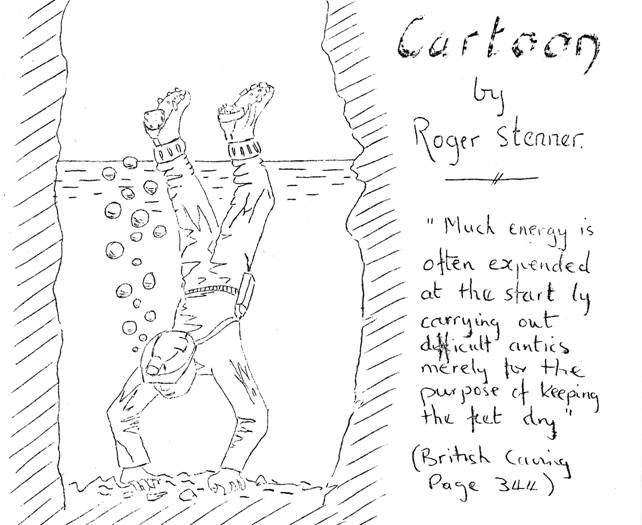 Cartoon
by
Roger Stenner.
"Much energy is
often expended
at the start by
carrying out
difficult antics
merely for the
purpose of keeping
the feet dry"
(British Caving
Page 344)